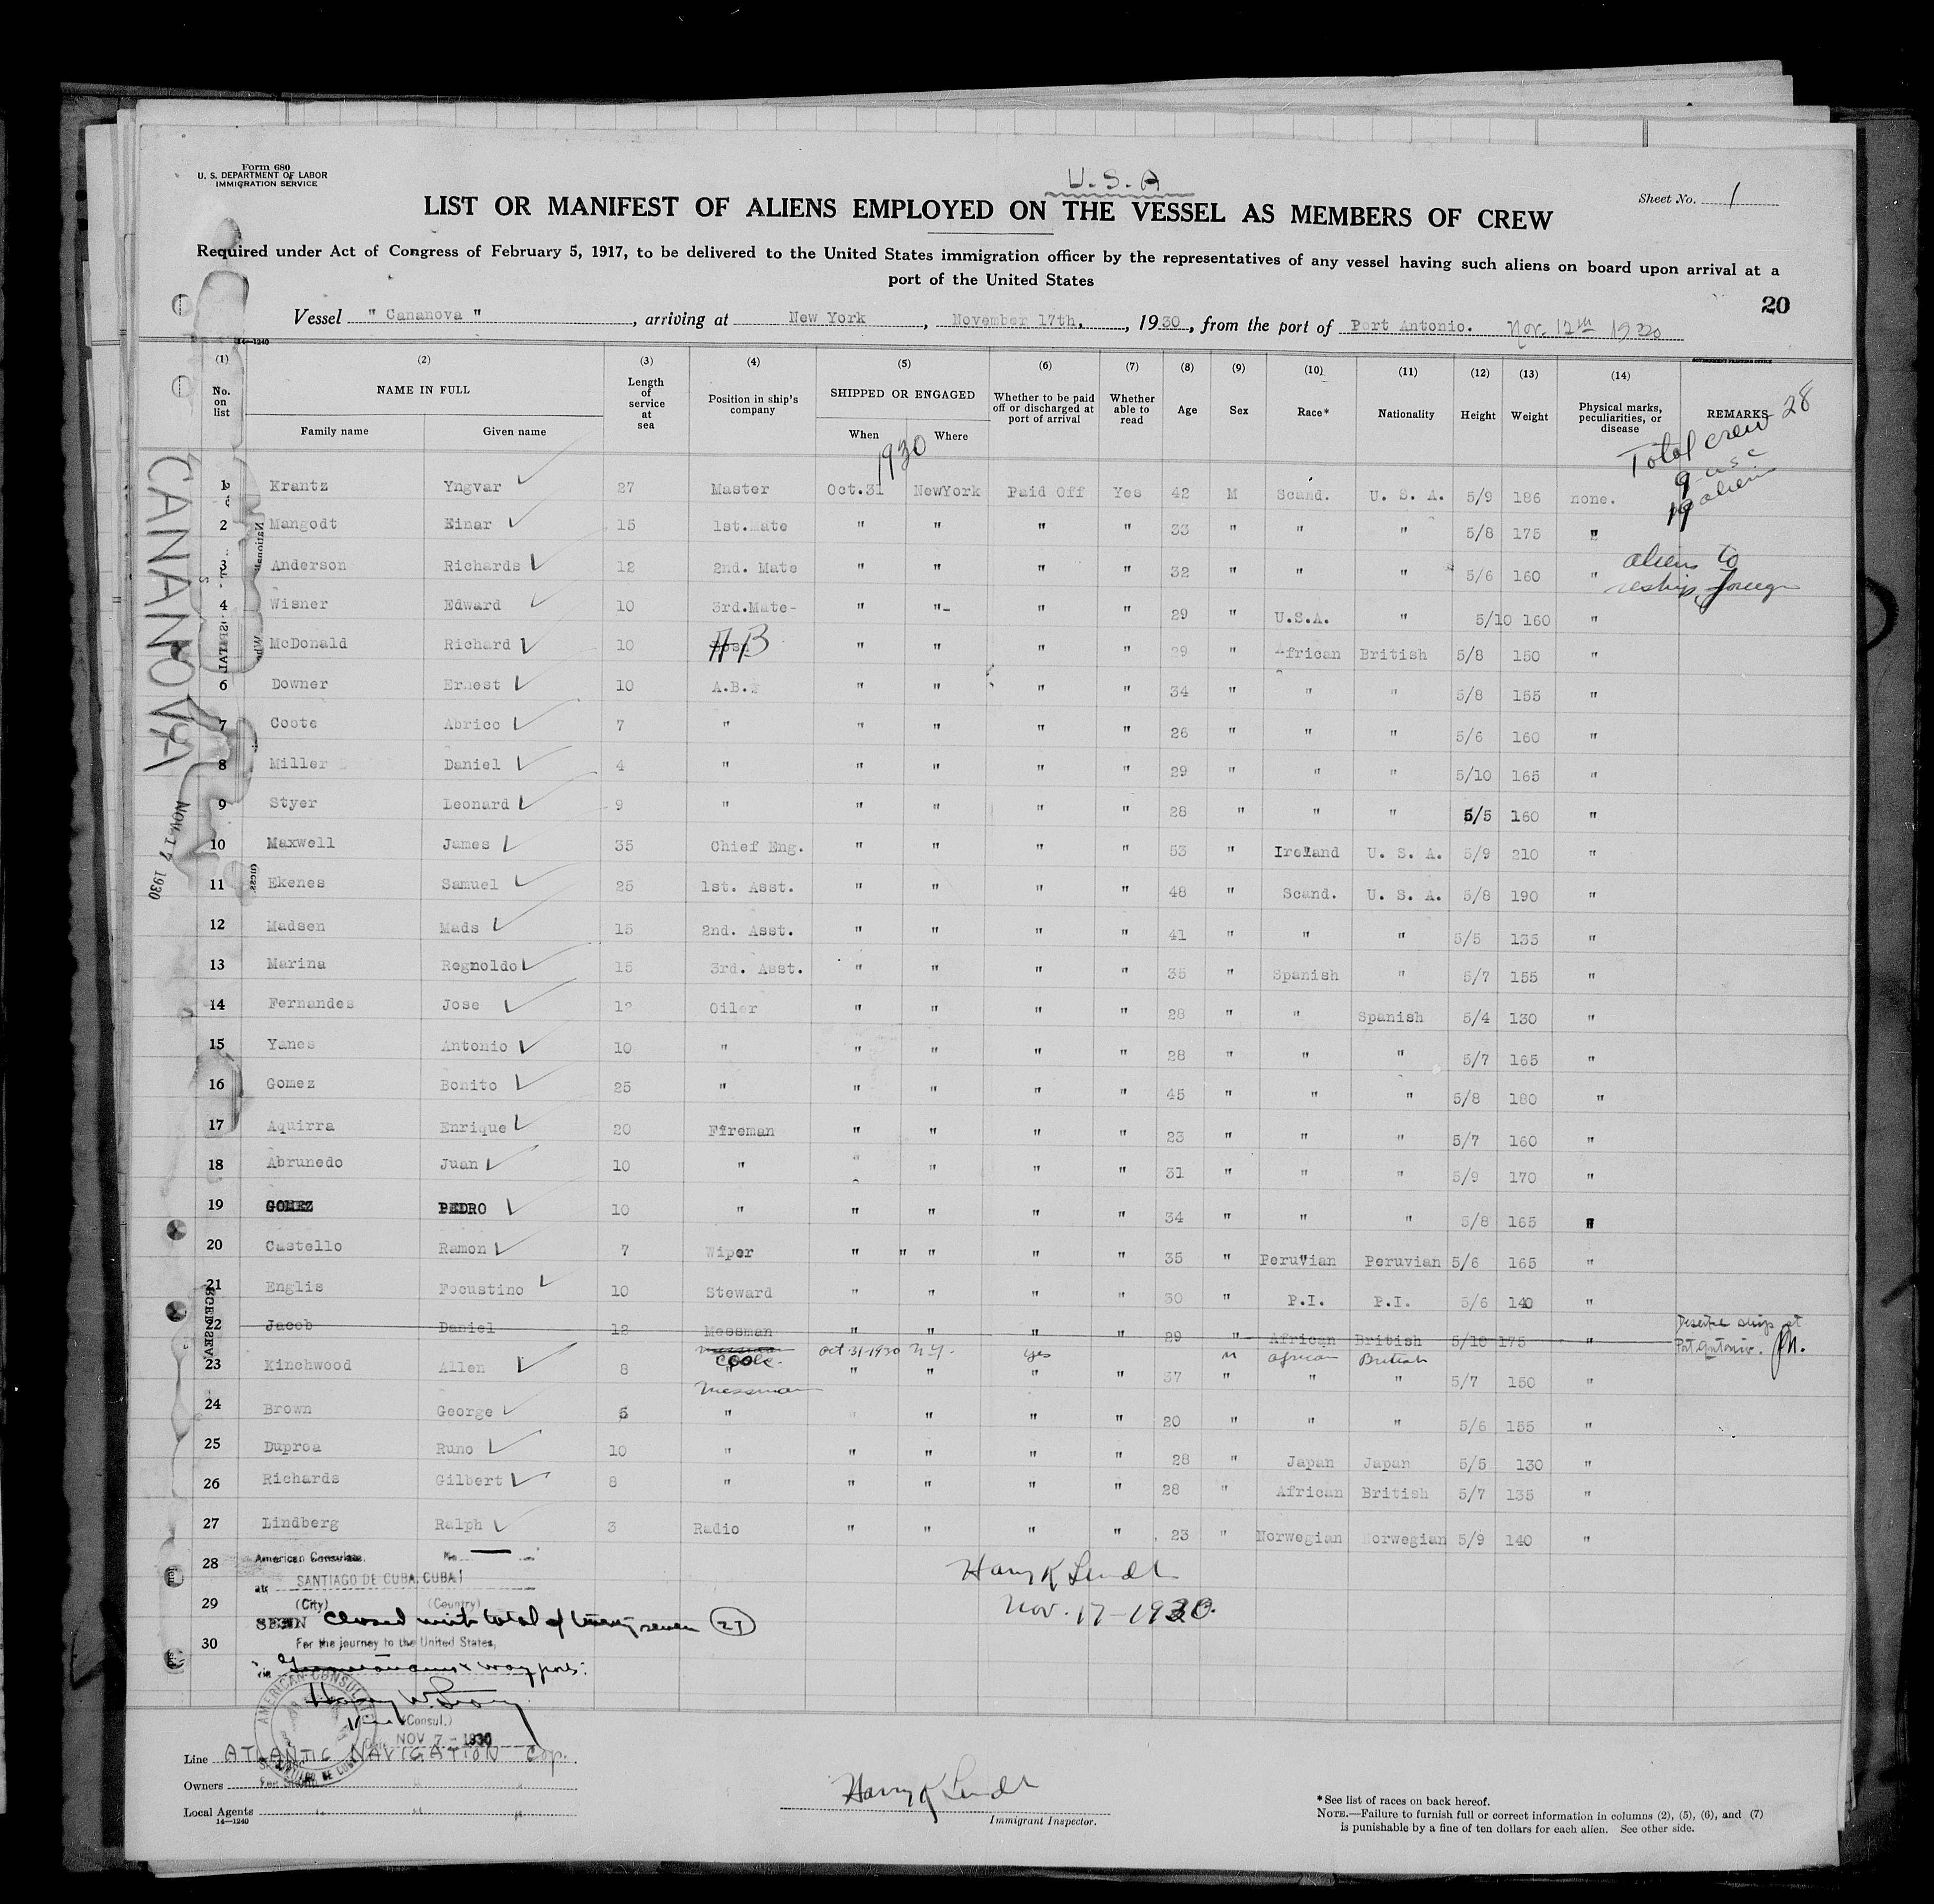 Form 680
U. S. DEPARTMENT OF LABOR
IMMIGRATION SERVICE
U.S.A
Sheet No. 1
LIST OR MANIFEST OF ALIENS EMPLOYED ON THE VESSEL AS MEMBERS OF CREW
Required under Act of Congress of February 5, 1917, to be delivered to the United States immigration officer by the representatives of any vessel having such aliens on board upon arrival at a
port of the United States
20
Vessel " Cananova ", arriving at New York, November 17th, , 1930, from the port of Port Antonio. Nov. 12th 1930
14—1240
GOVERNMENT PRINTING OFFICE
(1) (2) (3) (4) (5) (6) (7) (8) (9) (10) (11) (12) (13) (14)
No. on list NAME IN FULL Length of service at sea Position in ship's company SHIPPED OR ENGAGED Whether to be paid off or discharged at port of arrival Whether able to read Age Sex Race* Nationality Height Weight Physical marks, peculiarities, or disease REMARKS
Family name Given name When Where
1930
Total crew 28
9 usc
19 aliens
aliens to
reship foreign
CANANOVA
NOV 17 1930
1 Krantz Yngvar 27 Master Oct.31 NewYork Paid Off Yes 42 M Scand. U. S. A. 5/9 186 none.
2 Mangodt Einar 15 1st.Mate " " " " 33 " " " 5/8 175 "
3 Anderson Richards 12 2nd. Mate " " " " 32 " " " 5/6 160 "
4 Wisner Edward 10 3rd.Mate- " "- " " 29 " U.S.A. " 5/10 160 "
McDonald Richard 10 AB " " " " 29 " African British 5/8 150 "
6 Downer Ernest 10 A.B. " " " " 34 " " " 5/8 155 "
7 Coote Abrico 7 " " " " " 26 " " " 5/6 160 "
8 Miller Daniel 4 " " " " " 29 " " " 5/10 165 "
9 Styer Leonard 9 " " " " " 28 " " " 5/5 160 "
10 Maxwell James 35 Chief Eng. " " " " 53 " Ireland U. S. A. 5/9 210 "
11 Ekenes Samuel 25 1st. Asst. " " " " 48 " Scand. U. S. A. 5/8 190 "
12 Madsen Mads 15 2nd. Asst. " " " " 41 " " " 5/5 135 "
13 Marina Regnoldo 15 3rd. Asst. " " " " 35 " Spanish " 5/7 155 "
14 Fernandes Jose 12 Oiler " " " " 28 " " Spanish 5/4 130 "
15 Yanes Antonio 10 " " " " " 28 " " " 5/7 165 "
16 Gomez Bonito 25 " " " " " 45 " " " 5/8 180 "
17 Aquirra Enrique 20 Fireman " " " " 23 " " " 5/7 160 "
18 Abrunedo Juan 10 " " " " " 31 " " " 5/9 170 "
19 GOMEZ PEDRO 10 " " " " " 34 " " " 5/8 165 "
20 Castello Ramon 7 Wiper " " " " " 35 " Peruvian Peruvian 5/6 165 "
21 Englis Focustino 10 Steward " " " " 30 " P.I. P.I. 5/6 140 "
22 Jacob Daniel 12 Messman " " " " 29 " African British 5/10 175 " Deserted ship at
Port Antonio.
messman Oct 31-1930 N.Y. yes M African British
23 Kinchwood Allen 8 Cook " " " " 37 " " " 5/7 150 "
messman
24 Brown George 5 " " " " " 20 " " " 5/6 155 "
25 Duproa Runo 10 " " " " " 28 " Japan Japan 5/5 130 "
26 Richards Gilbert 8 " " " " " 28 " African British 5/7 135 "
27 Lindberg Ralph 3 Radio " " " " 23 " Norwegian Norwegian 5/9 140 "
28 American Consulate. No.
at SANTIAGO DE CUBA, CUBA
Harry K Lendt
(City) (Country)
Nov. 17-1930.
29
SEEN Closed with total of twenty seven (27)
30 For the journey to the United States,
via Guantanamo & way ports.
AMERICAN CONSULATE
Harry W. Story
Vice (Consul.)
NOV 7 - 1930
Line ATLANTIC NAVIGATION Cop.
Owners " " "
Local Agents " " "
14—1240
Harry K Lendt
Immigrant Inspector.
*See list of races on back hereof.
NOTE.—Failure to furnish full or correct information in columns (2), (5), (6), and (7)
is punishable by a fine of ten dollars for each alien. See other side.